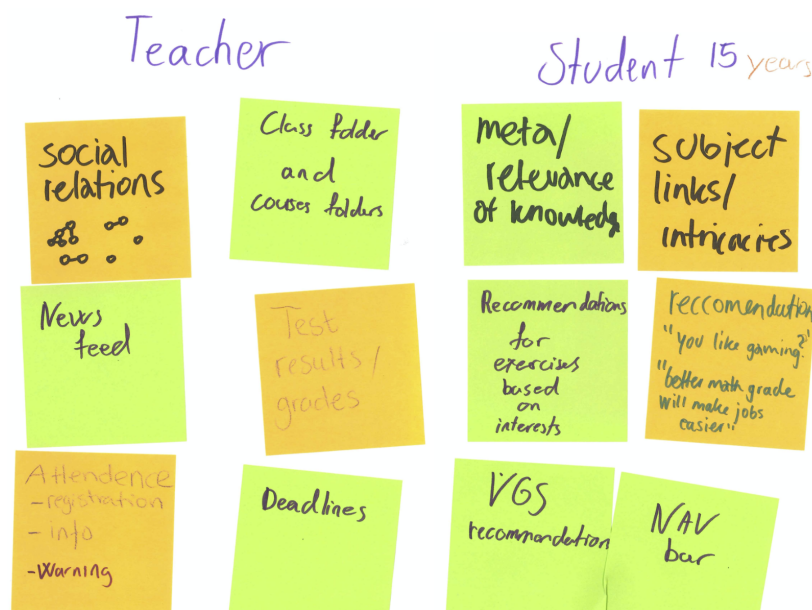 Teacher
Student 15 years
social
relations
Class folder
and
couses folders
meta/
relevance
of knowledg
subject
links/
intricacies
News
feed
Test
results/
grades
Recommendations
for
exercises
based
on
interests
reccomendation
"you like gaming?"
"better math grade
will make jobs
easier"
Attendence
-registration
- info
-Warning
Deadlines
VGS
recommandation
NAV
bar